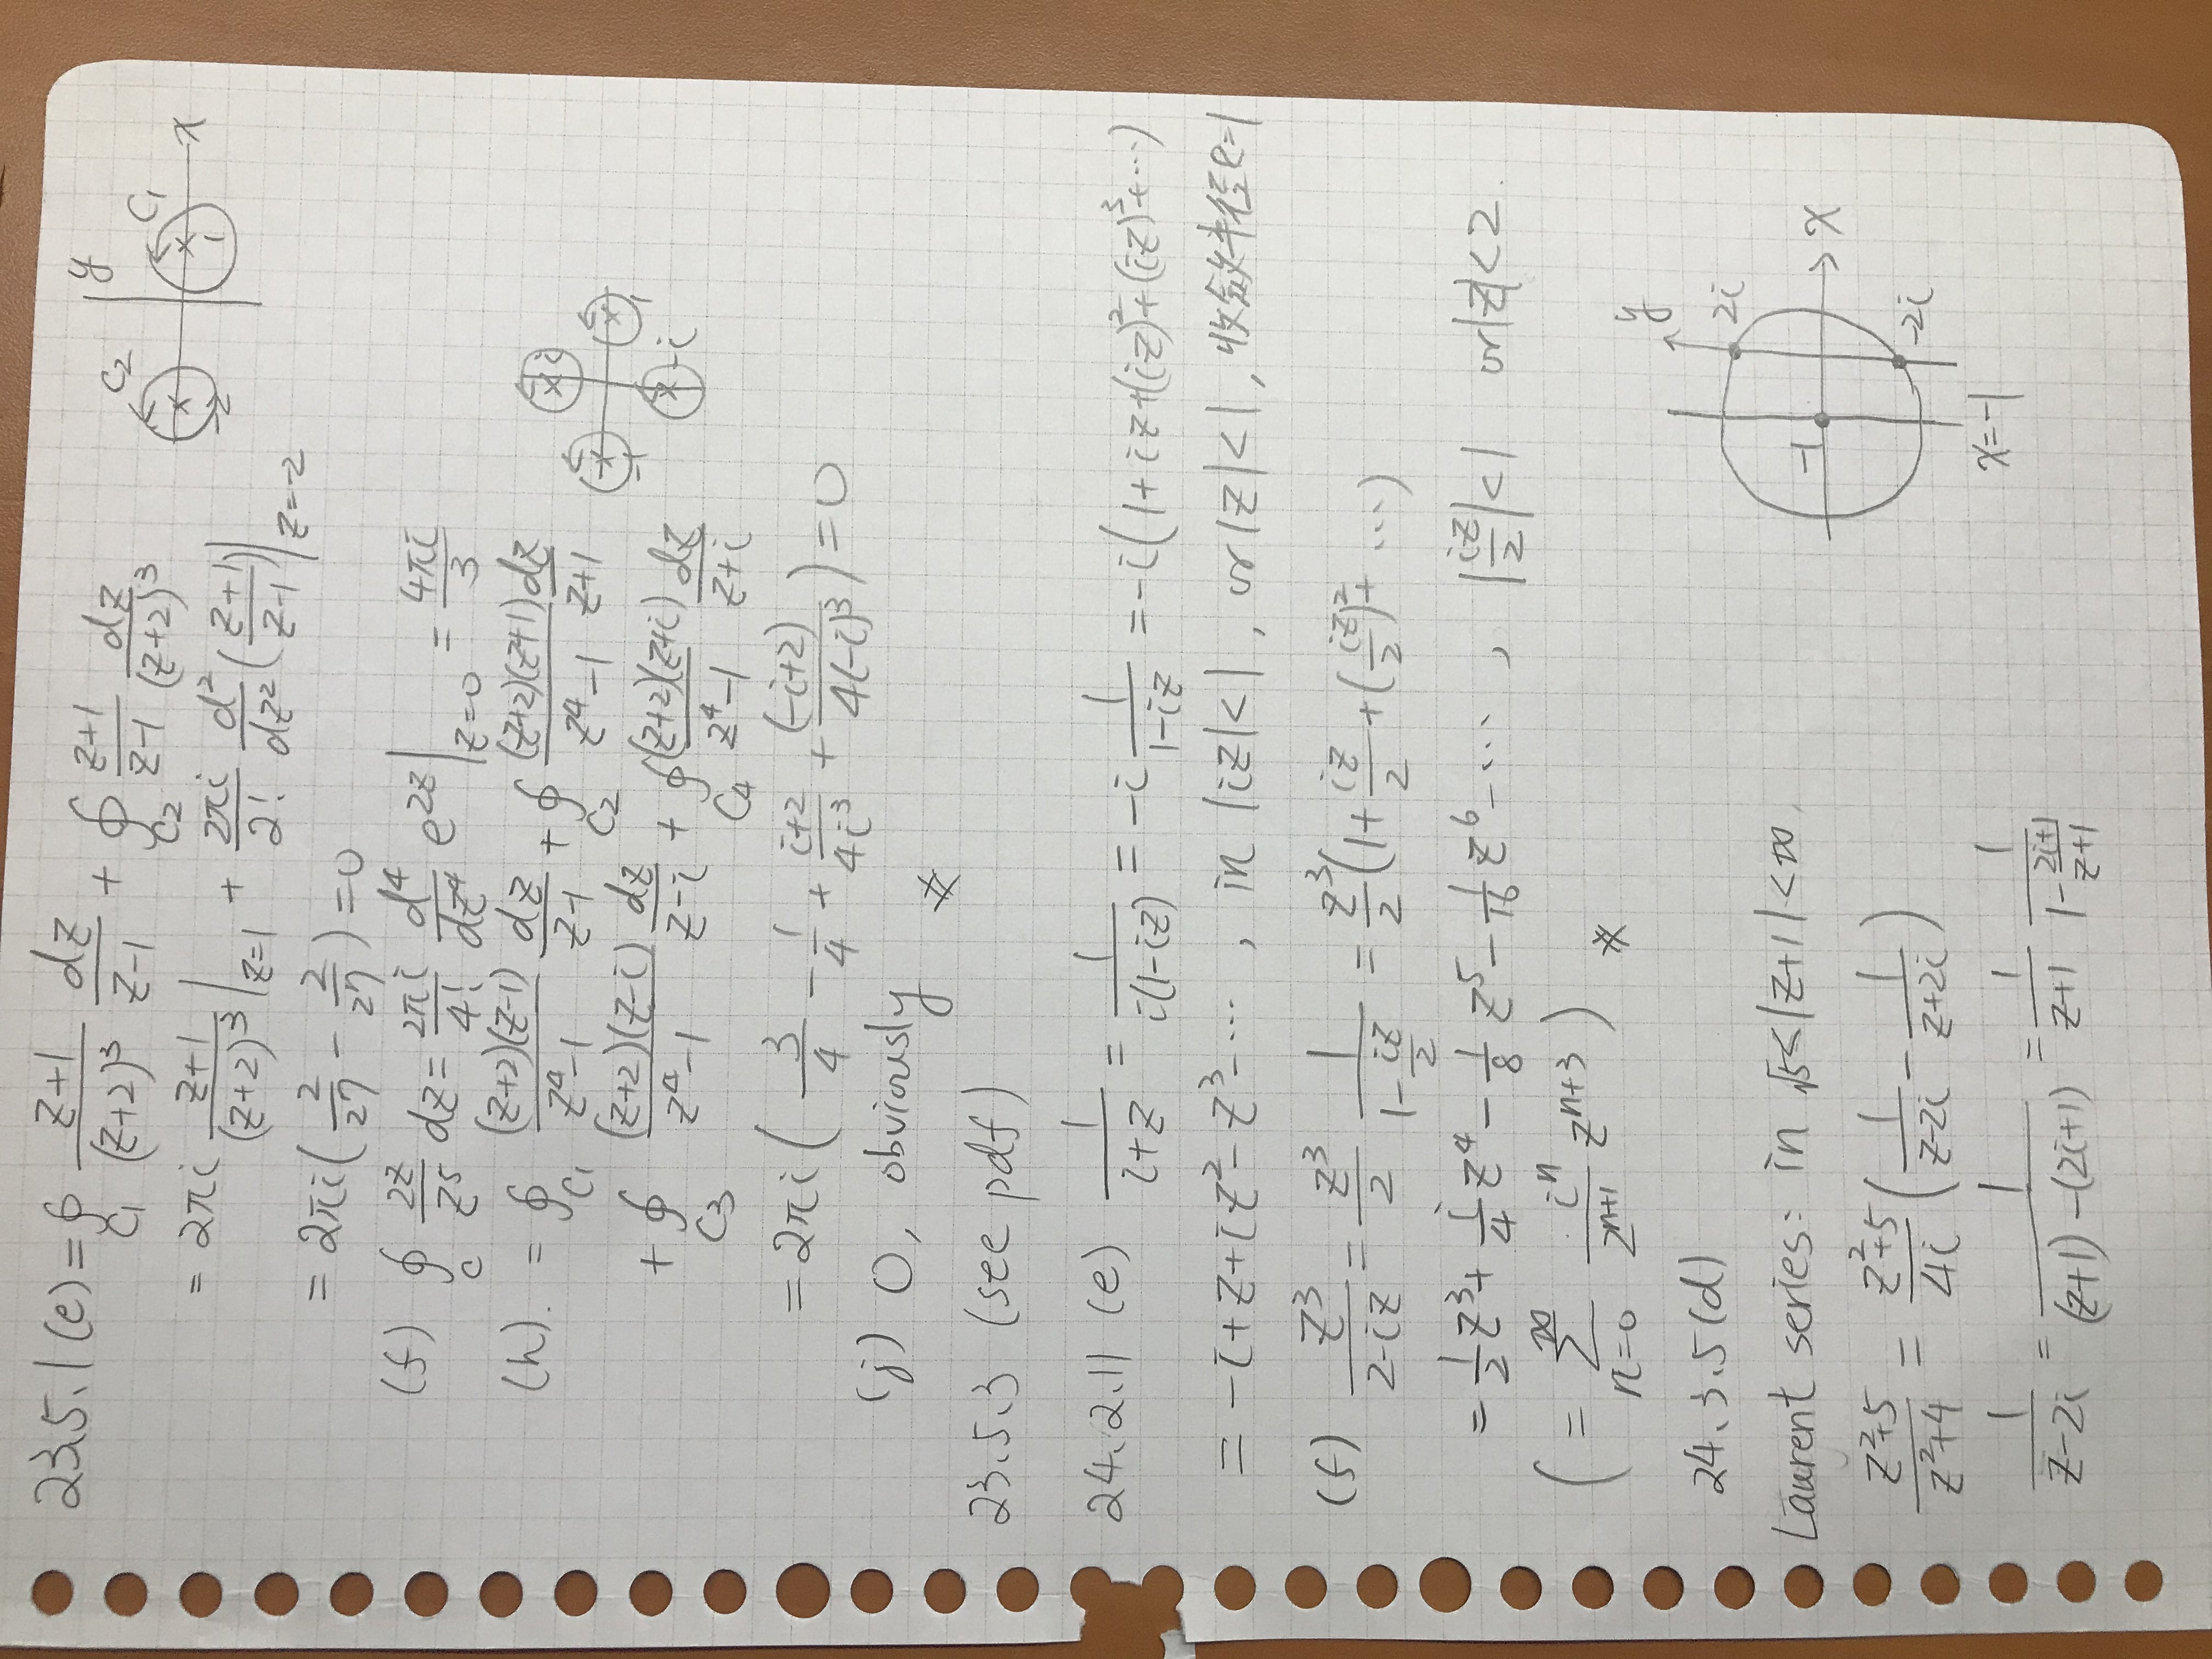 23.5.1 (e) = ∮_{C₁} \frac{z+1}{(z+2)^3} \frac{dz}{z-1} + ∮_{C₂} \frac{z+1}{z-1} \frac{dz}{(z+2)^3}
C₂ y C₁ x -2 1
= 2πi \frac{z+1}{(z+2)^3} |_{z=1} + \frac{2πi}{2!} \frac{d^2}{dz^2} (\frac{z+1}{z-1}) |_{z=-2}
= 2πi ( \frac{2}{27} - \frac{2}{27} ) = 0
(f) ∮_C \frac{2z}{z^5} dz = \frac{2πi}{4!} \frac{d^4}{dz^4} e^{2z} |_{z=0} = \frac{4πi}{3}
(h). = ∮_{C₁} \frac{(z+2)(z-1)}{z^4-1} \frac{dz}{z-1} + ∮_{C₂} \frac{(z+2)(z+1)}{z^4-1} \frac{dz}{z+1}
i -1 1 -i
+ ∮_{C₃} \frac{(z+2)(z-i)}{z^4-1} \frac{dz}{z-i} + ∮_{C₄} \frac{(z+2)(z+i)}{z^4-1} \frac{dz}{z+i}
= 2πi ( \frac{3}{4} - \frac{1}{4} + \frac{i+2}{4i^3} + \frac{(-i+2)}{4(-i)^3} ) = 0
(j) 0, obviously
23.5.3 (see pdf)
24.2.11 (e) \frac{1}{i+z} = \frac{1}{i(1-iz)} = -i \frac{1}{1-iz} = -i(1+iz+(iz)^2+(iz)^3+⋯)
= -i+z+iz^2-z^3-⋯ , in |iz|<1, or |z|<1, 收斂半徑R=1
(f) \frac{z^3}{2-iz} = \frac{z^3}{2} \frac{1}{1-\frac{iz}{2}} = \frac{z^3}{2} (1+\frac{iz}{2}+(\frac{iz}{2})^2+ ⋯)
= \frac{1}{2}z^3 + \frac{i}{4}z^4 - \frac{1}{8}z^5 - \frac{1}{16}z^6 - ⋯ , |\frac{iz}{2}|<1 or |z|<2.
( = \sum_{n=0}^{∞} \frac{i^n}{2^{n+1}} z^{n+3} )
24.3.5(d)
Laurent series: in √5<|z+1|<∞.
y 2i -1 x -2i x=-1
\frac{z^2+5}{z^2+4} = \frac{z^2+5}{4i} ( \frac{1}{z-2i} - \frac{1}{z+2i} )
\frac{1}{z-2i} = \frac{1}{(z+1)-(2i+1)} = \frac{1}{z+1} \frac{1}{1-\frac{2i+1}{z+1}}